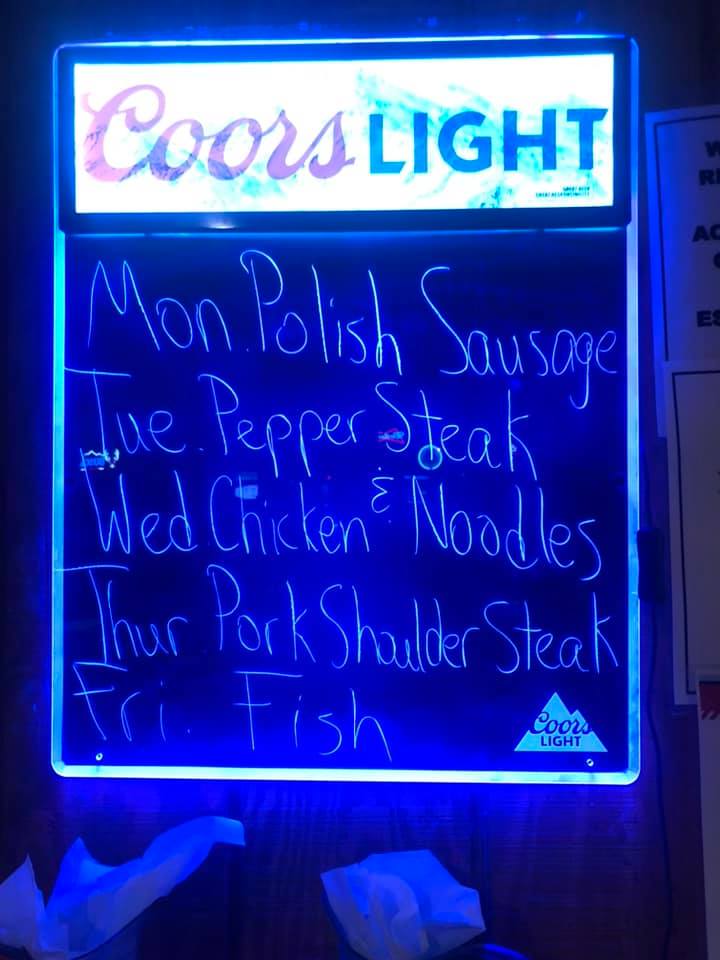 Coors LIGHT
Mon. Polish Sausage
Tue. Pepper Steak
Wed Chicken & Noodles
Thur Pork Shoulder Steak
Fri. Fish
Coors
LIGHT
W
AC
ES